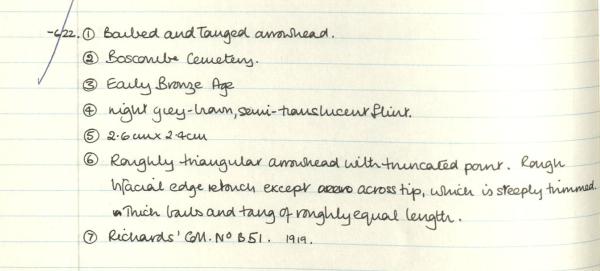 -622. ① Barbed and Tanged arrowhead.
② Boscombe Cemetery.
③ Early Bronze Age
④ night grey-brown, semi-translucent flint.
⑤ 2.6cm x 2.4cm
⑥ Roughly triangular arrowhead with truncated point. Rough
bifacial edge retouch except across tip, which is steeply trimmed.
Thick barbs and tang of roughly equal length.
⑦ Richards' Coll. No B51. 1919.